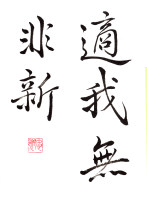 適我無
非新